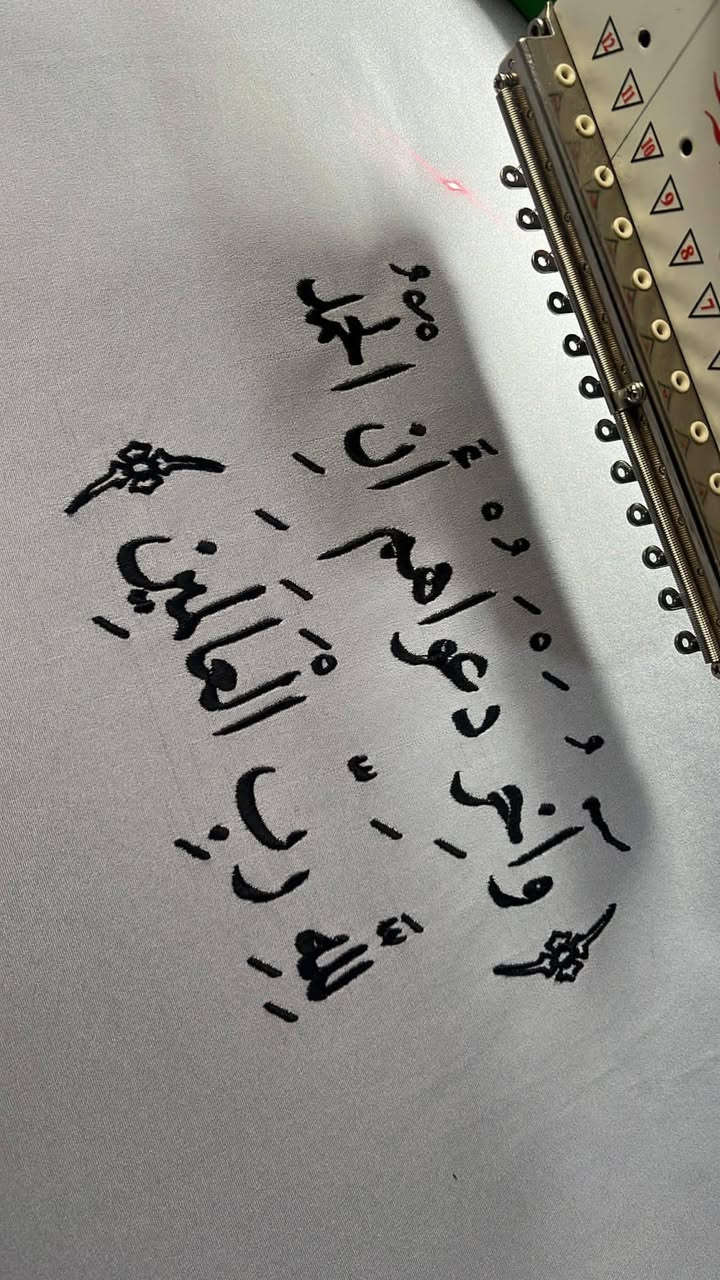 ﴿وَآخِرُ دَعْوَاهُمْ أَنِ الْحَمْدُ
لِلَّهِ رَبِّ الْعَالَمِينَ﴾
12
11
10
9
8
7